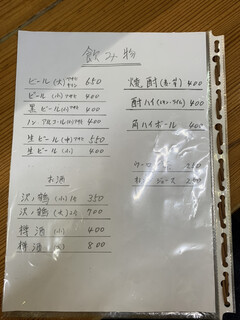 飲み物
ビール(大) 650
ビール(小) 400
黒ビール(小) 400
ノンアルコール(小) 400
生ビール(中) 550
生ビール(小) 400
お酒
沢ノ鶴(小)1合 350
沢ノ鶴(大)2合 700
樽酒(小) 400
樽酒(大) 800
焼酎(麦・芋) 400
酎ハイ(レモン・ライム) 400
角ハイボール 400
ジュース 200